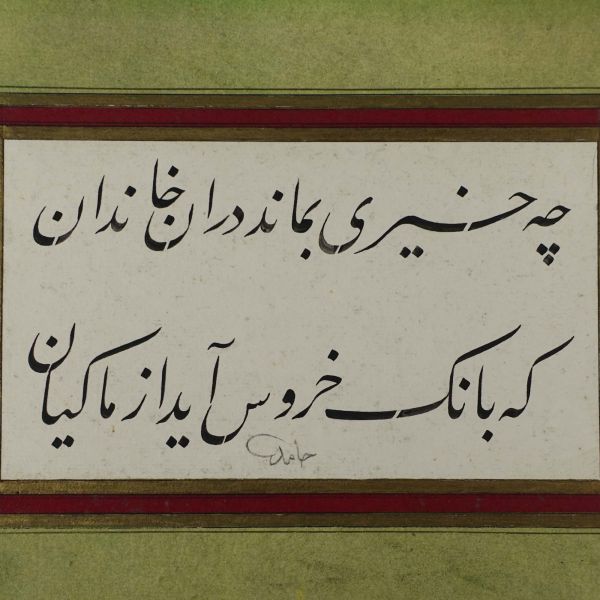 چه خیری بماند دران خاندان
که بانک خروس آید از ماکیان
حامد